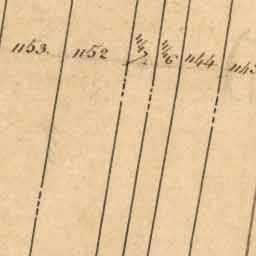 1153. 1152 1147. 1146 1144 1143